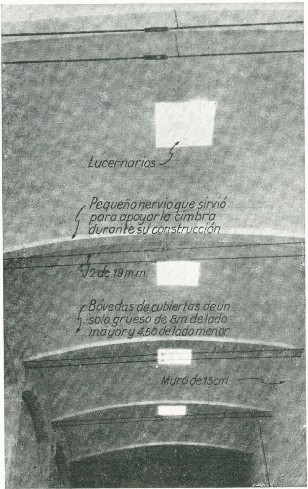 Lucernarios
Pequeño nervio que sirvió
para apoyar la cimbra
durante su construcción
2 de 19 m.m.
Bovedas de cubiertas de un
solo grueso de 8m de lado
mayor y 4,50 de lado menor
Muro de 15cm